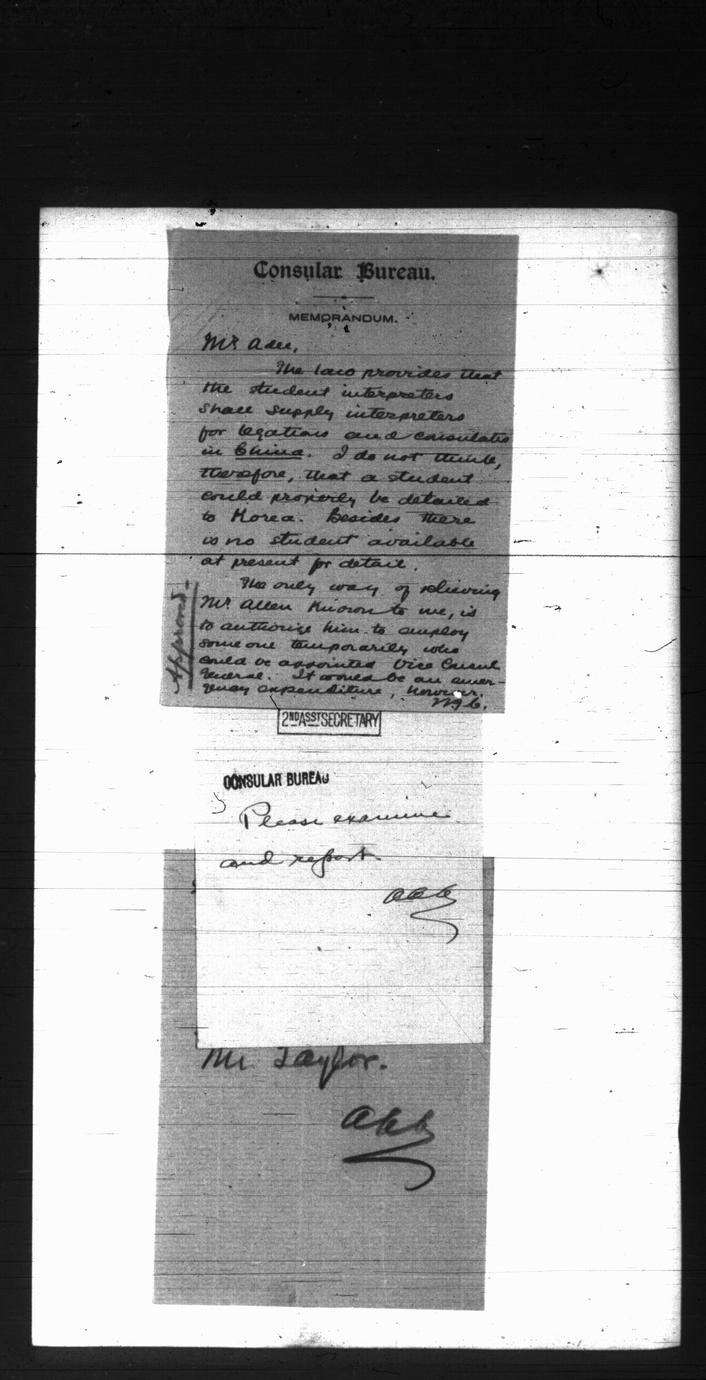 Consular Bureau.
MEMORANDUM.
Mr. Adee,
The law provides that
the student interpreters
shall supply interpreters
for legations and consulates
in China. I do not think,
therefore, that a student
could properly be detailed
to Korea. Besides there
is no student available
at present for detail.
The only way of relieving
Mr. Allen known to me, is
to authorize him to employ
someone temporarily who
could be appointed Vice Consul
General. It would be an emer-
gency expenditure, however.
Approved-
2ND ASST SECRETARY
CONSULAR BUREAU
Please examine
and report.
Mr. Taylor.